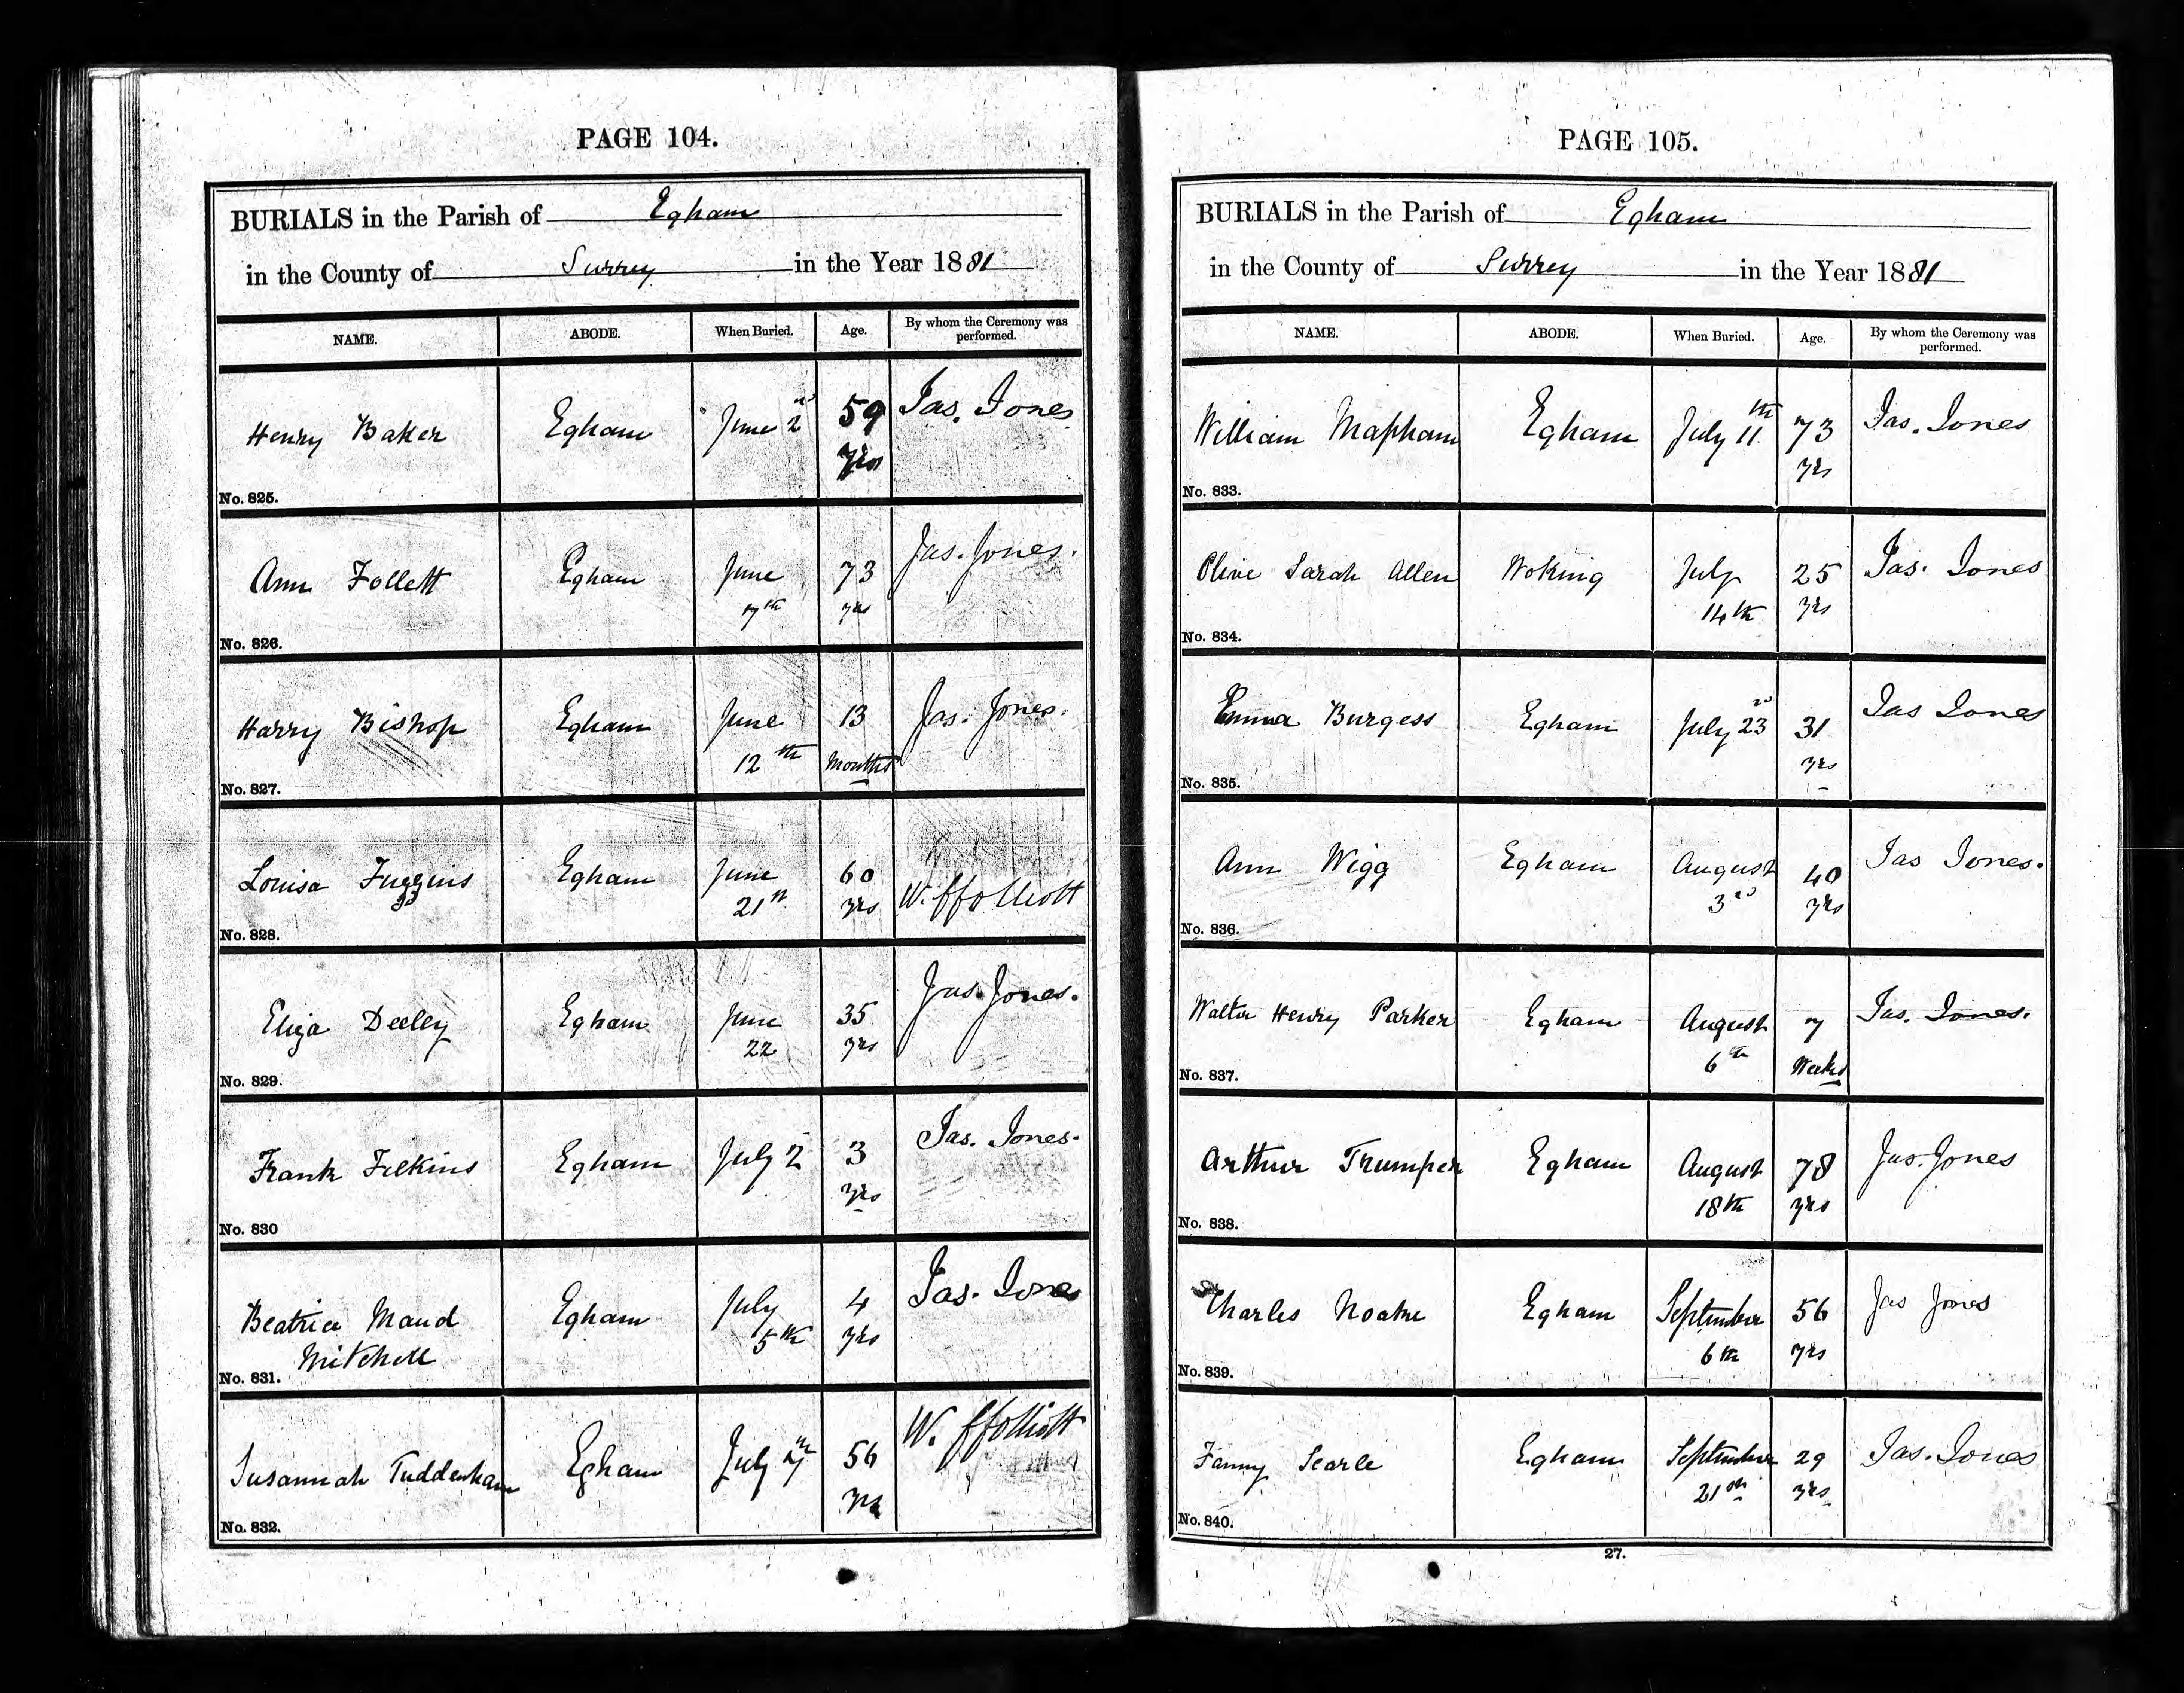 PAGE 104.
BURIALS in the Parish of Egham
in the County of Surrey in the Year 1881
NAME. ABODE. When Buried. Age. By whom the Ceremony was performed.
Henry Baker Egham June 2nd 59 yrs Jas. Jones
No. 825.
Ann Follett Egham June 7th 73 yrs Jas. Jones.
No. 826.
Harry Bishop Egham June 12th 13 Months Jas. Jones.
No. 827.
Louisa Fuggins Egham June 21st 60 yrs W. ffolliott
No. 828.
Eliza Deeley Egham June 22 35 yrs Jas. Jones.
No. 829.
Frank Filkins Egham July 2 3 yrs Jas. Jones.
No. 830
Beatrice Maud Mitchell Egham July 5th 4 yrs Jas. Jones
No. 831.
Susannah Tuddenham Egham July 7th 56 yrs W. ffolliott
No. 832.
PAGE 105.
BURIALS in the Parish of Egham
in the County of Surrey in the Year 1881
NAME. ABODE. When Buried. Age. By whom the Ceremony was performed.
William Mapham Egham July 11th 73 yrs Jas. Jones
No. 833.
Olive Sarah Allen Woking July 14th 25 yrs Jas. Jones
No. 834.
Emma Burgess Egham July 23rd 31 yrs Jas Jones
No. 835.
Ann Wigg Egham August 3rd 40 yrs Jas Jones.
No. 836.
Walter Henry Parker Egham August 6th 7 Weeks Jas. Jones.
No. 837.
Arthur Trumper Egham August 18th 78 yrs Jas. Jones
No. 838.
Charles Noake Egham September 6th 56 yrs Jas Jones
No. 839.
Fanny Searle Egham September 21st 29 yrs Jas. Jones
No. 840.
27.